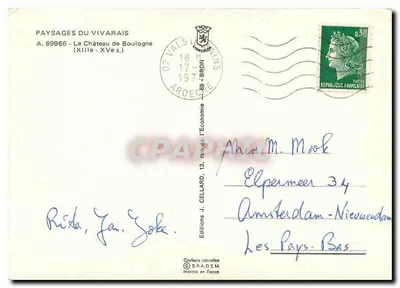 PAYSAGES DU VIVARAIS
A. 69966 - Le Château de Boulogne
(XIIIe - XVe s.)
07 VALS LES BAINS
18 H
17 -
197
ARDECHE
0,30
REPUBLIQUE FRANÇAISE
Editions J. CELLARD, 13, rue de l'Economie - 69 - BRON
CPARAMA.com
M. Mook
Elpermeer 34
Amsterdam-Nieuwendam
Les Pays-Bas
Jan, Joke.
Couleurs naturelles
© S.P.A.D.E.M.
Imprimé en France